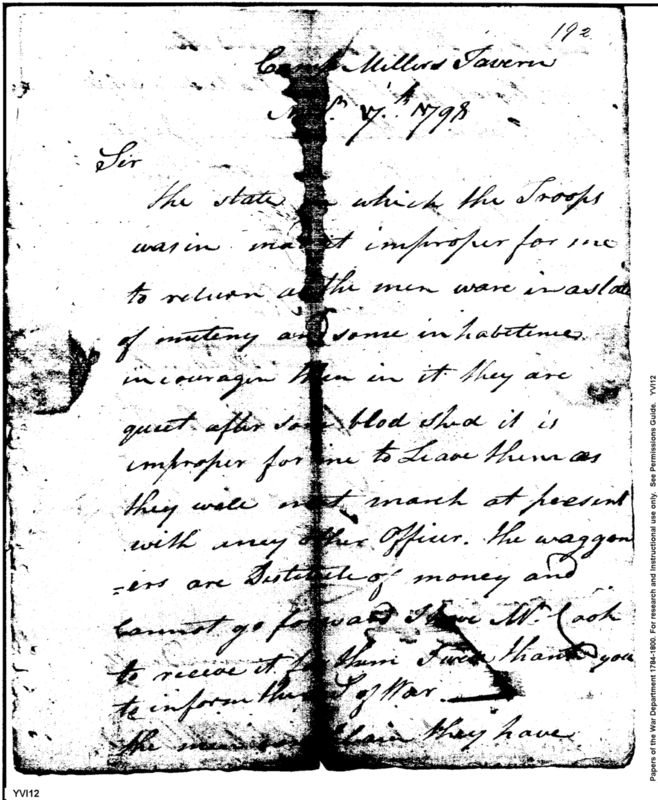 192
Camp Millers Tavern
17th 1798
Sir
the state in which the Troops
was in mak it improper for me
to return as the men ware in a stat
of muteny and some inhabitence
incouragin them in it they are
quiet after some blod shed it is
improper for me to Leave them as
they wale not march at present
with iney other Officer. the waggon
=ers are Distitute of money and
Cannot go forward I have Mr. Cook
to receve it for them I will thank you
to inform the S of War
the men complain they have
YVI12
Papers of the War Department 1784-1800. For research and Instructional use only. See Permissions Guide. YVI12